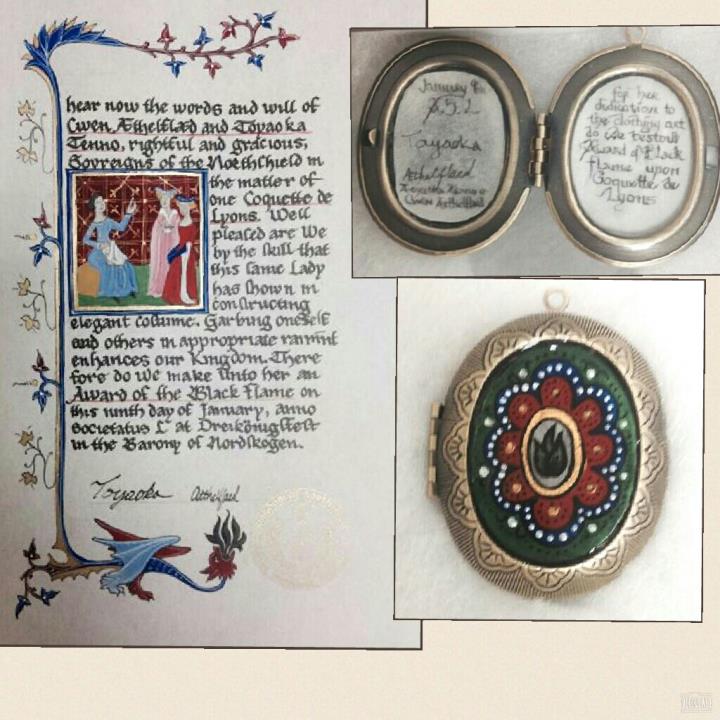 hear now the words and will of
Cwen Æthelflæd and Toyaoka
Tenno, rightful and gracious,
Sovreigns of the Northshield in
the matter of
one Coquette de
Lyons. Well
pleased are We
by the skill that
this same Lady
has shown in
constructing
elegant costume. Garbing oneself
and others in appropriate raiment
enhances our Kingdom. There
fore do We make unto her an
Award of the Black Flame on
this ninth day of January, anno
societatus L at Dreikönigsfest
in the Barony of Nordskogen.
Toyaoka
January 9th
A.S. L
Toyaoka
Æthelflaed
Cwen Æthelflaed
for her
dedication to
the clothing art
do We bestow
Award of Black
Flame upon
Coquette de
Lyons